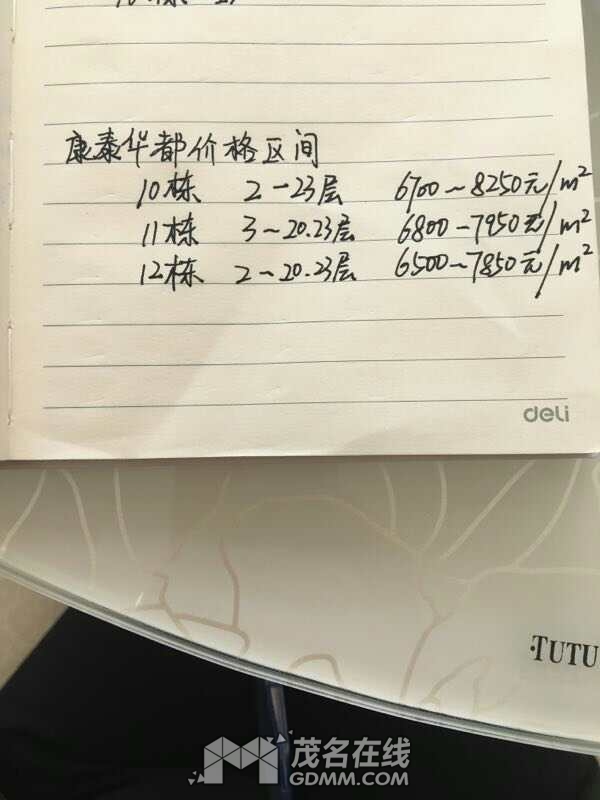 康泰华都价格区间
10栋 2-23层 6700~8250元/m²
11栋 3~20.23层 6800-7950元/m²
12栋 2~20.23层 6500~7850元/m²
deli
·TUTU
茂名在线
GDMM.COM